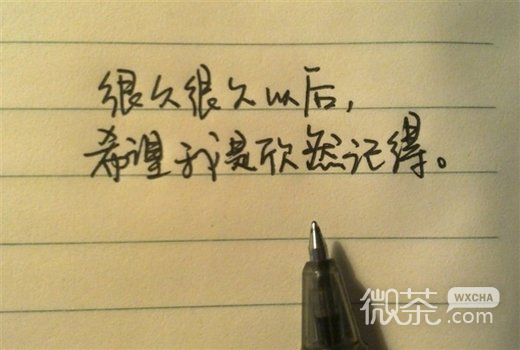 很久很久以后,
希望我是欣然记得。
微茶
WXCHA